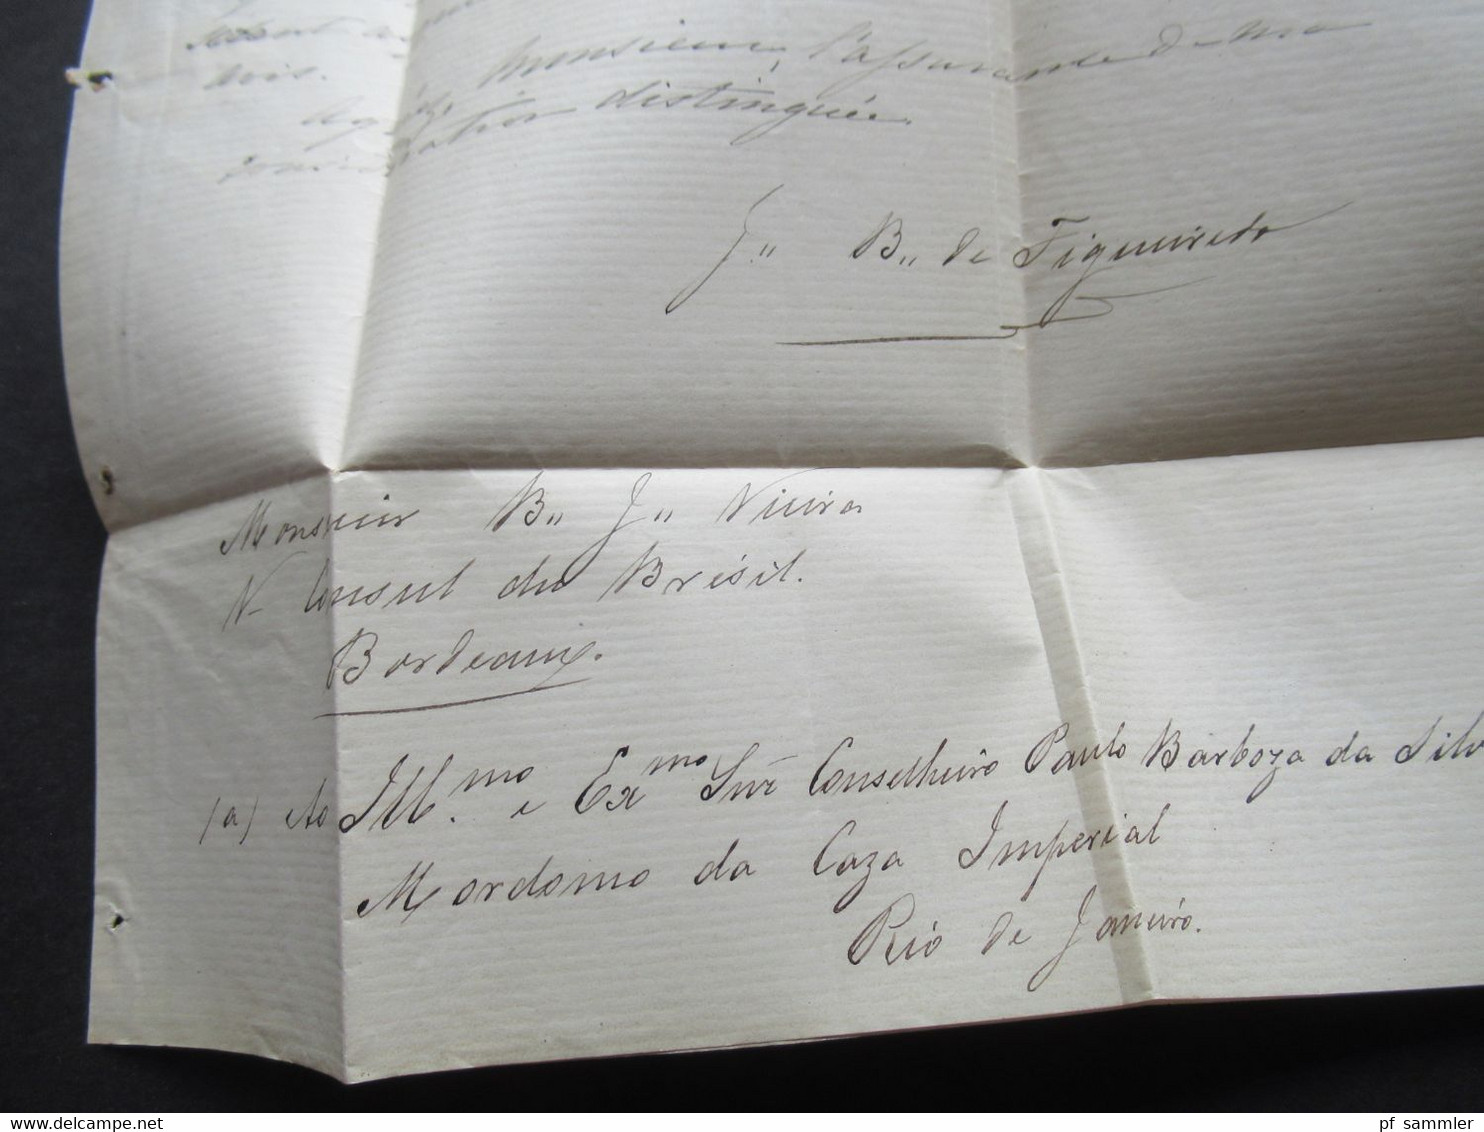 avis.
Monsieur, l'assurance de ma
distinguée.
J" B" de Figueiredo
Monsieur B" J" Vieira
V- Consul du Brésil.
Bordeaux.
(a) Ao Ill.mo e Exmo Snr Conselheiro Paulo Barboza da Silv
Mordomo da Caza Imperial
Rio de Janeiro.
pf_sammler